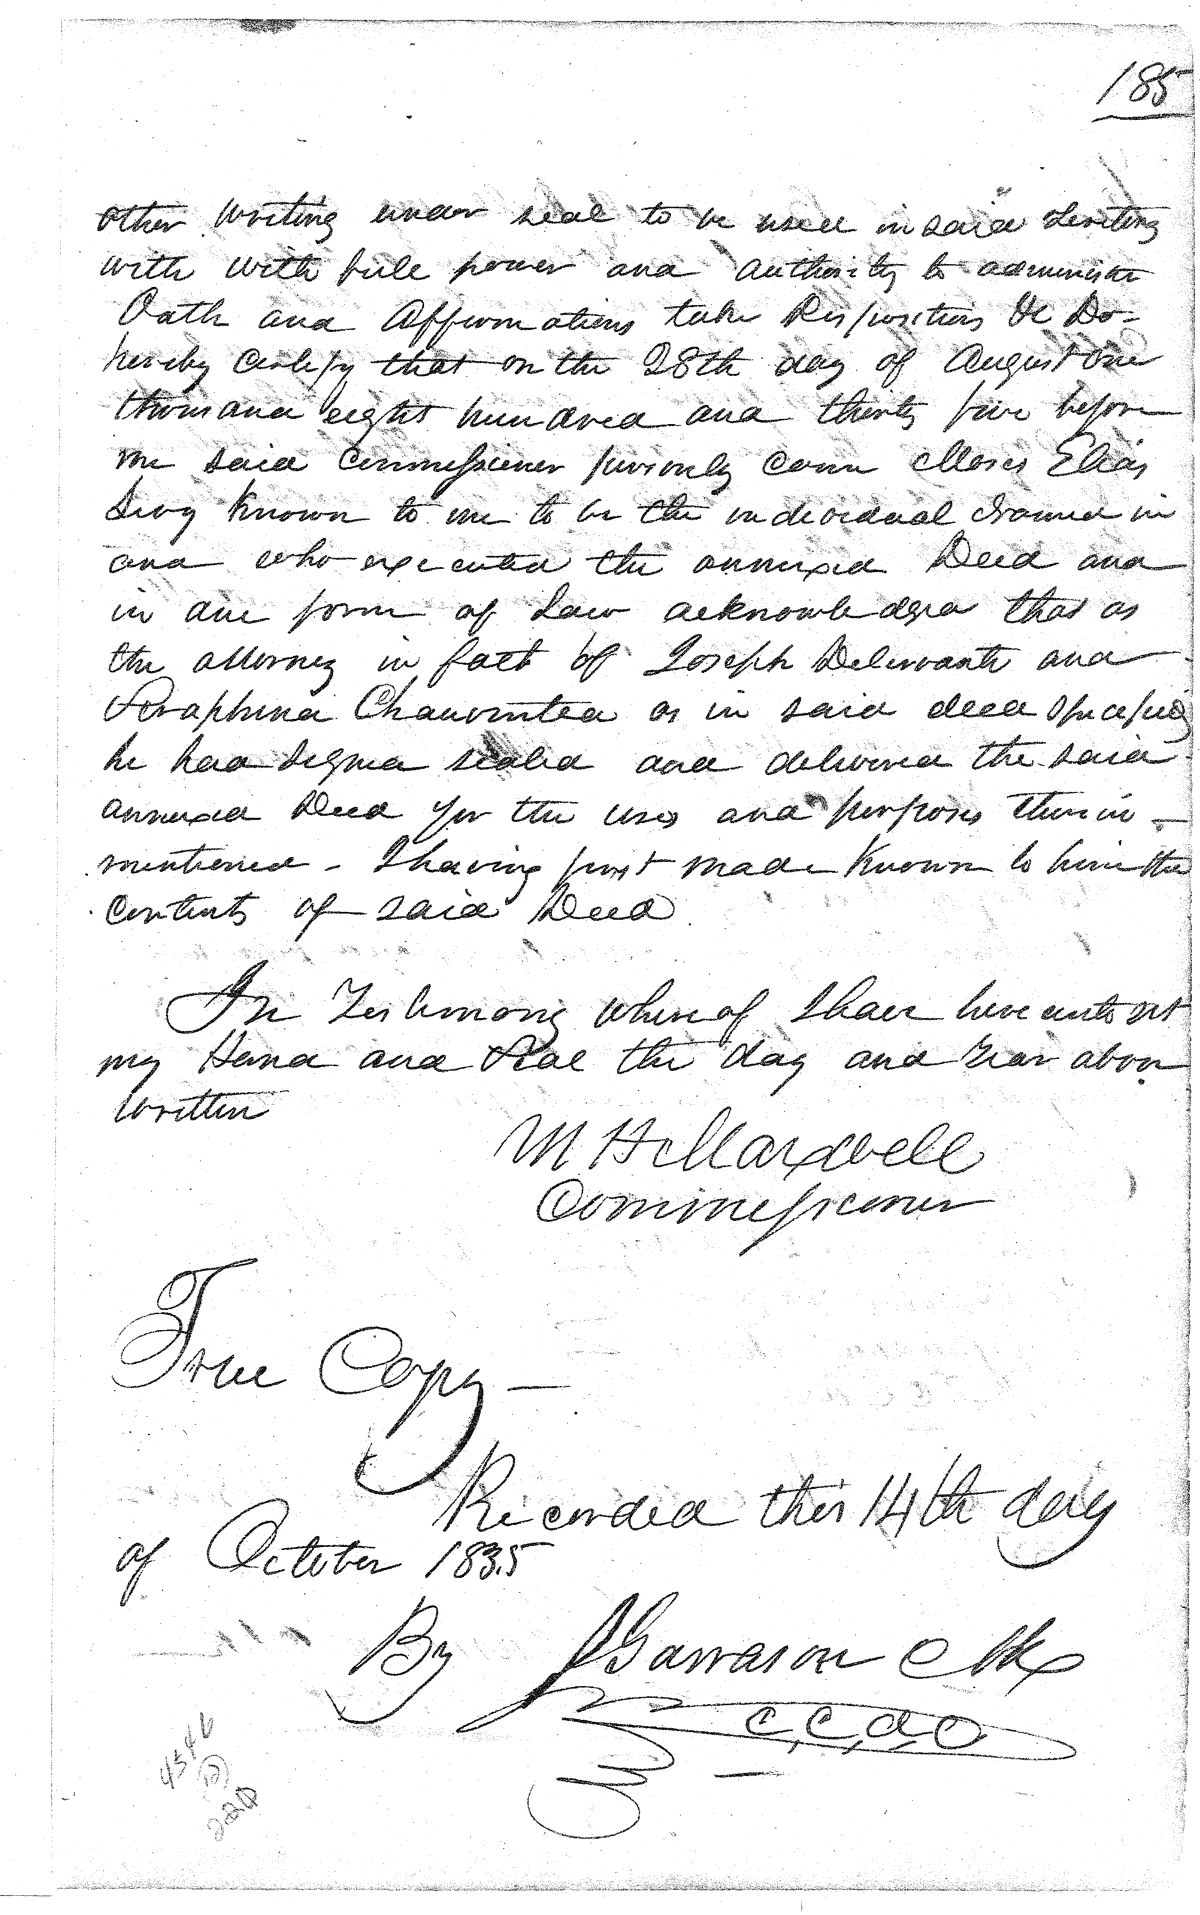 185
other writing under seal to be used in said
with with full power and authority to administer
Oath and Affirmations take Dispositions &c Do-
hereby certify that on the 28th day of August One
thousand eight hundred and thirty five before
me said Commissioner personly came Moses Elias
Levy Known to me to be the individual named in
and who executed the annexed Deed and
in due form of Law acknowledged that as
the attorney in fact of Joseph Delevante and
Seraphina Chauviteau as in said deed specified
he had signed sealed and delivered the said
annexed Deed for the uses and purposes therein -
mentioned - I having first made Known to him the
contents of said Deed
In Testimony whereof I have hereunto set
my Hand and Seal the day and Year above
written
M H Maxwell
Commissioner
True Copy -
Recorded this 14th day
of October 1835
By J Garrason Clk
C.C.D.O
4546
(12)
220